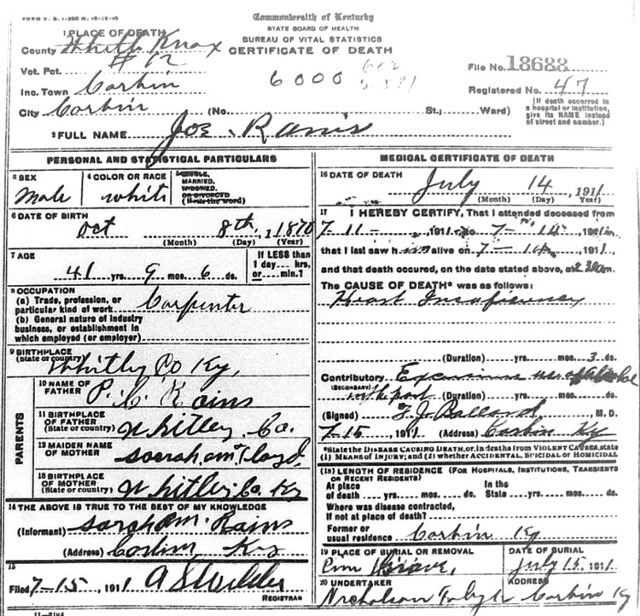 FORM V. S. 1-200 M. 10-12-10
Commonwealth of Kentucky
STATE BOARD OF HEALTH
BUREAU OF VITAL STATISTICS
CERTIFICATE OF DEATH
1 PLACE OF DEATH
County Knox
Vot. Pct. #12
6000
File No. 18688
Inc. Town Corbin
Registered No. 47
City Corbin (No. St.; Ward)
[If death occurred in a hospital or institution, give its NAME instead of street and number.]
2 FULL NAME Joe Rains
PERSONAL AND STATISTICAL PARTICULARS
3 SEX Male
4 COLOR OR RACE white
5 SINGLE, MARRIED, WIDOWED, OR DIVORCED (Write the word)
6 DATE OF BIRTH Oct 8th, 1870
(Month) (Day) (Year)
7 AGE 41 yrs. 9 mos. 6 ds.
If LESS than 1 day.... hrs, or.... min.?
8 OCCUPATION
(a) Trade, profession, or particular kind of work Carpenter
(b) General nature of industry business, or establishment in which employed (or employer)
9 BIRTHPLACE (State or country) Whitley Co Ky,
PARENTS
10 NAME OF FATHER P. C. Rains
11 BIRTHPLACE OF FATHER (State or country) Whitley Co.
12 MAIDEN NAME OF MOTHER Sarah M Floyd,
13 BIRTHPLACE OF MOTHER (State or country) Whitley Co. Ky
14 THE ABOVE IS TRUE TO THE BEST OF MY KNOWLEDGE
(Informant) Sarah M. Rains
(Address) Corbin Ky
15
Filed 7-15, 1911
REGISTRAR
MEDICAL CERTIFICATE OF DEATH
16 DATE OF DEATH July 14, 1911
(Month) (Day) (Year)
17 I HEREBY CERTIFY, That I attended deceased from
7-11-, 1911, to 7-14-, 1911
that I last saw him alive on 7-14, 1911,
and that death occured, on the date stated above, at m.
The CAUSE OF DEATH* was as follows:
Heart Insuficiency
(Duration) yrs. mos. 3 ds.
Contributory Excessive use of Alcohol
(SECONDARY)
(Duration) yrs. mos. ds.
(Signed) F. J. Ballard, M. D.
7-15, 1911 (Address) Corbin Ky
*State the DISEASE CAUSING DEATH, or, in deaths from VIOLENT CAUSES, state (1) MEANS OF INJURY; and (2) whether ACCIDENTAL, SUICIDAL or HOMICIDAL
(18) LENGTH OF RESIDENCE (FOR HOSPITALS, INSTITUTIONS, TRANSIENTS OR RECENT RESIDENTS)
At place of death yrs. mos. ds. In the State yrs. mos. ds.
Where was disease contracted, If not at place of death?
Former or usual residence Corbin Ky
19 PLACE OF BURIAL OR REMOVAL Grave,
DATE OF BURIAL July 15, 1911
20 UNDERTAKER Nicholson
ADDRESS Corbin Ky